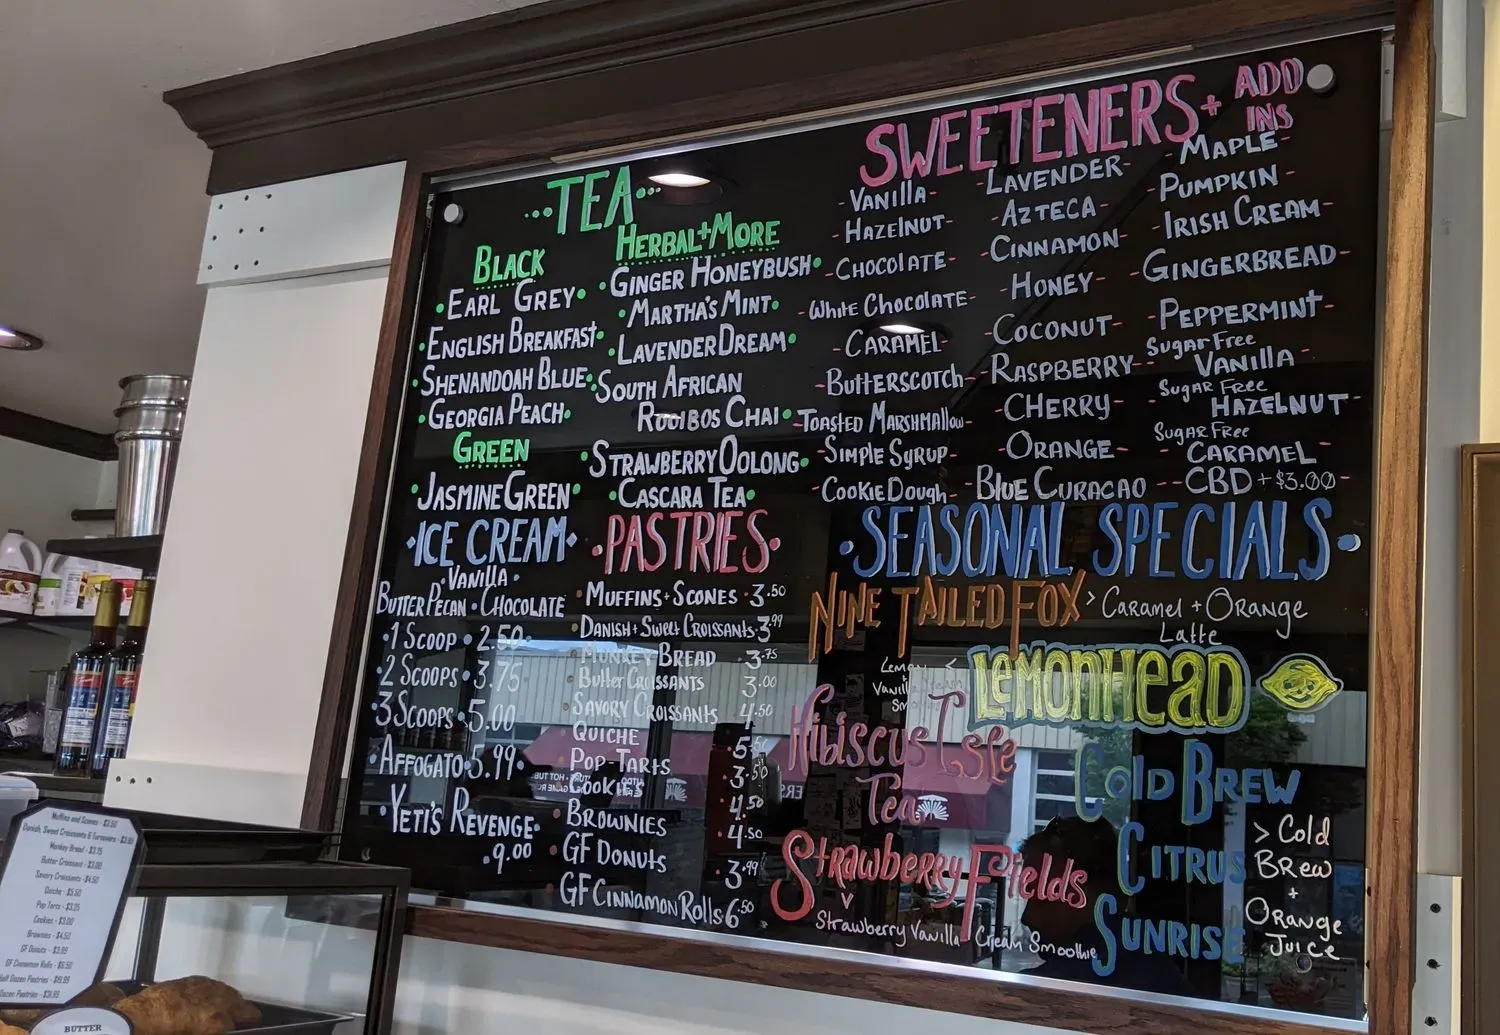 TEA
BLACK
EARL GREY
ENGLISH BREAKFAST
SHENANDOAH BLUE
GEORGIA PEACH
GREEN
JASMINE GREEN
HERBAL + MORE
GINGER HONEYBUSH
MARTHA'S MINT
LAVENDER DREAM
SOUTH AFRICAN
ROOIBOS CHAI
STRAWBERRY OOLONG
CASCARA TEA
SWEETENERS + ADD INS
- VANILLA -
- HAZELNUT -
- CHOCOLATE -
- White CHOCOLATE -
- CARAMEL -
- BUTTERSCOTCH -
- TOASTED MARSHMALLOW -
- SIMPLE SYRUP -
- COOKIE DOUGH -
- LAVENDER -
- AZTECA -
- CINNAMON -
- HONEY -
- COCONUT -
- RASPBERRY -
- CHERRY -
- ORANGE -
- BLUE CURACAO -
- MAPLE -
- PUMPKIN -
- IRISH CREAM -
- GINGERBREAD -
- PEPPERMINT -
- Sugar Free
VANILLA -
- SUGAR FREE
HAZELNUT -
SUGAR FREE
- CARAMEL -
- CBD + $3.00
ICE CREAM
VANILLA
BUTTER PECAN • CHOCOLATE
1 SCOOP • 2.50
2 SCOOPS • 3.75
3 SCOOPS • 5.00
AFFOGATO • 5.99
YETI'S REVENGE
9.00
PASTRIES
MUFFINS + SCONES • 3.50
DANISH + SWEET CROISSANTS • 3.99
MONKEY BREAD • 3.75
BUTTER CROISSANTS 3.00
SAVORY CROISSANTS 4.50
QUICHE
POP-TARTS
COOKIES
BROWNIES
GF DONUTS • 3.99
GF CINNAMON ROLLS 6.50
SEASONAL SPECIALS
NINE TAILED FOX > Caramel + Orange
Latte
LEMONHEAD
Hibiscus Isle
Tea
Strawberry Fields
Strawberry Vanilla Cream Smoothie
COLD BREW
CITRUS
SUNRISE
> Cold
BREW
+
ORANGE
JUICE
Muffins and Scones - $3.50
Monkey Bread - $3.75
Butter Croissant - $3.00
Savory Croissants - $4.50
Quiche - $5.50
Cookies - $3.00
Brownies - $4.50
GF Donuts - $3.99
GF Cinnamon Rolls - $6.50
BUTTER